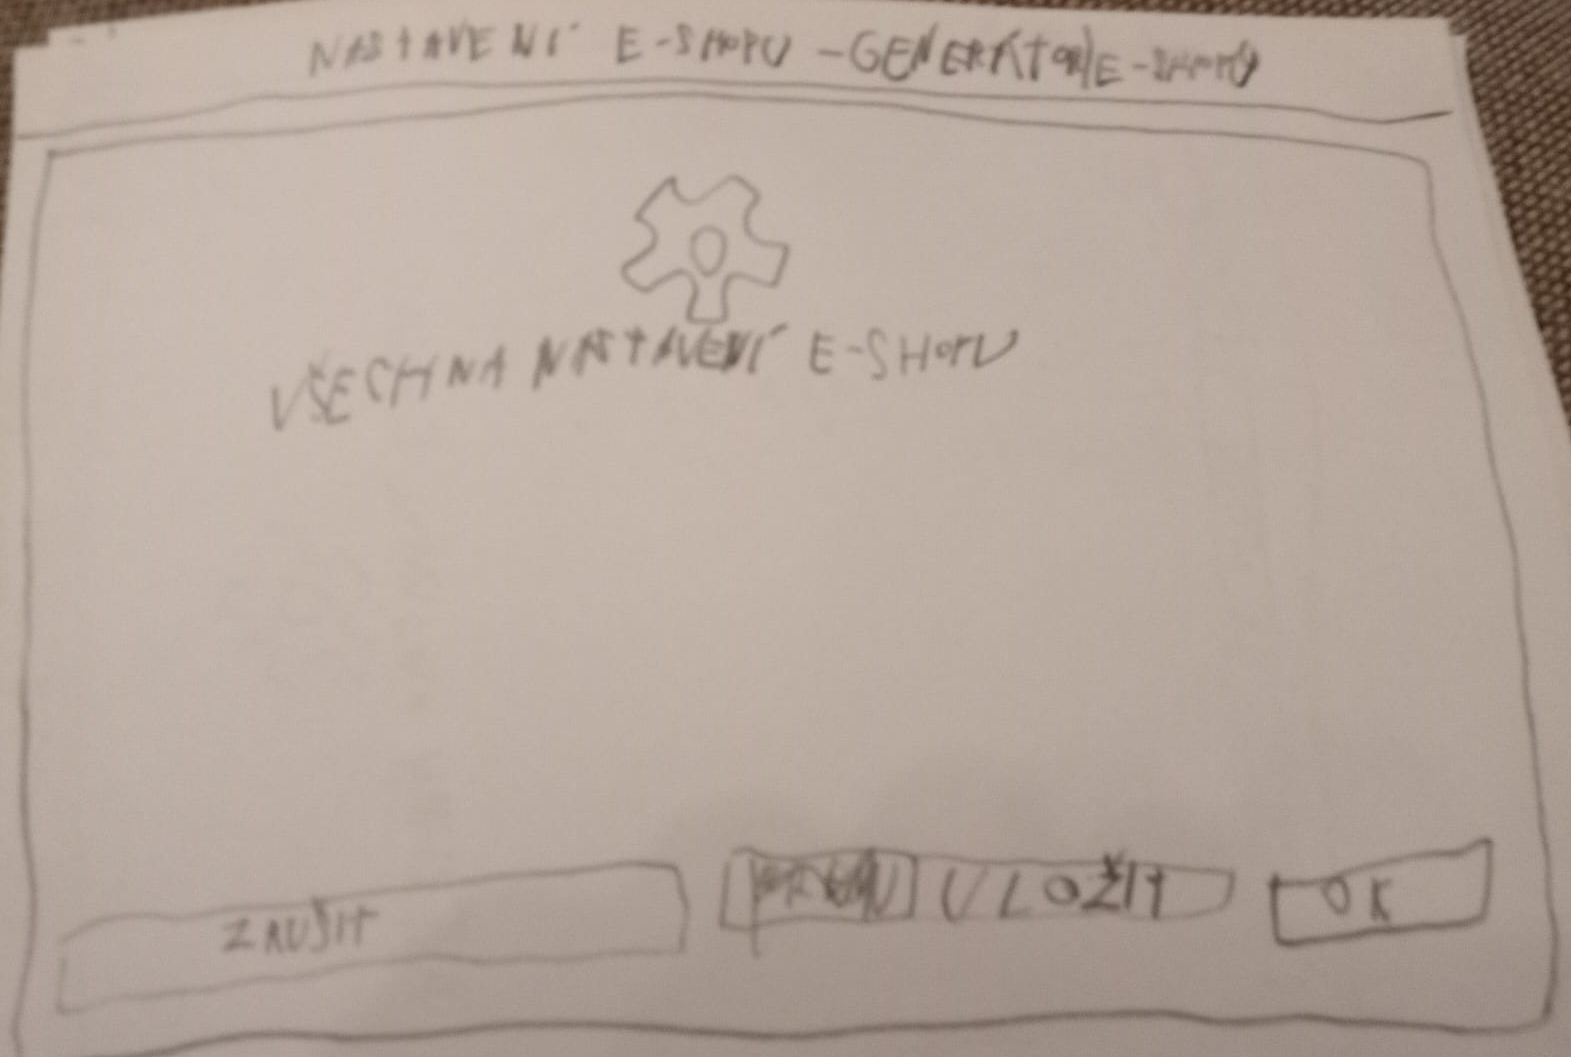 NASTAVENÍ E-SHOPU - GENERÁTOR E-SHOPŮ
VŠECHNA NASTAVENÍ E-SHOPU
ZRUŠIT
ULOŽIT
OK